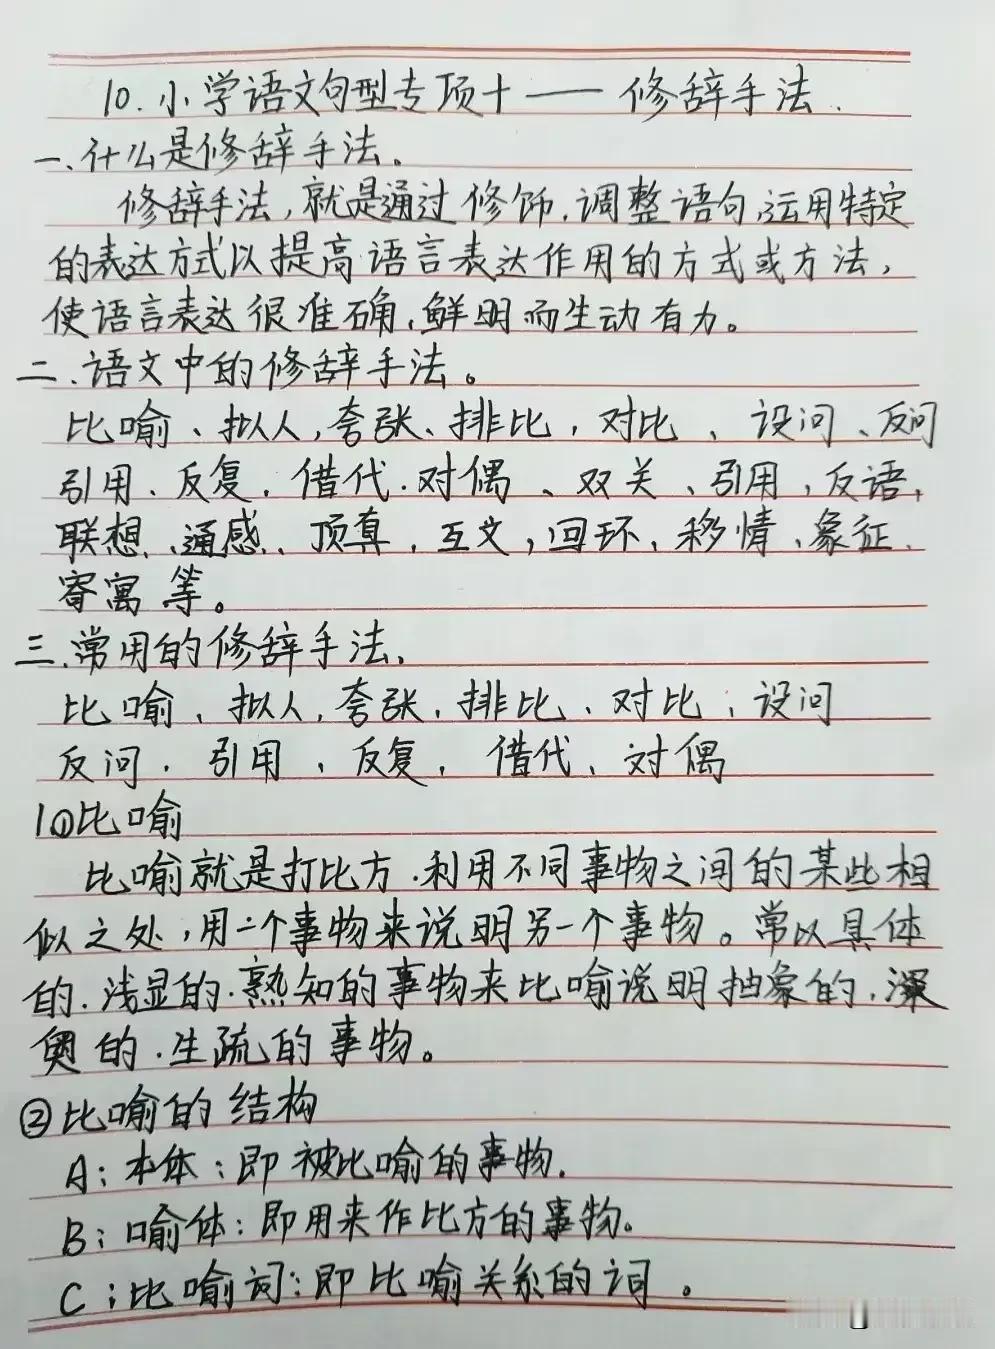 10.小学语文句型专项十——修辞手法.
一、什么是修辞手法。
修辞手法,就是通过修饰.调整语句,运用特定
的表达方式以提高语言表达作用的方式或方法,
使语言表达很准确.鲜明而生动有力。
二.语文中的修辞手法。
比喻、拟人,夸张、排比,对比、设问、反问
引用.反复.借代.对偶、双关、引用,反语,
联想、通感、顶真,互文,回环、移情、象征、
寄寓等。
三.常用的修辞手法、
比喻、拟人,夸张.排比、对比,设问
反问.引用、反复.借代、对偶
1①比喻
比喻就是打比方.利用不同事物之间的某些相
似之处,用一个事物来说明另一个事物。常以具体
的.浅显的.熟知的事物来比喻说明抽象的.深
奥的.生疏的事物。
②比喻的结构
A:本体:即被比喻的事物.
B:喻体:即用来作比方的事物。
C:比喻词:即比喻关系的词。